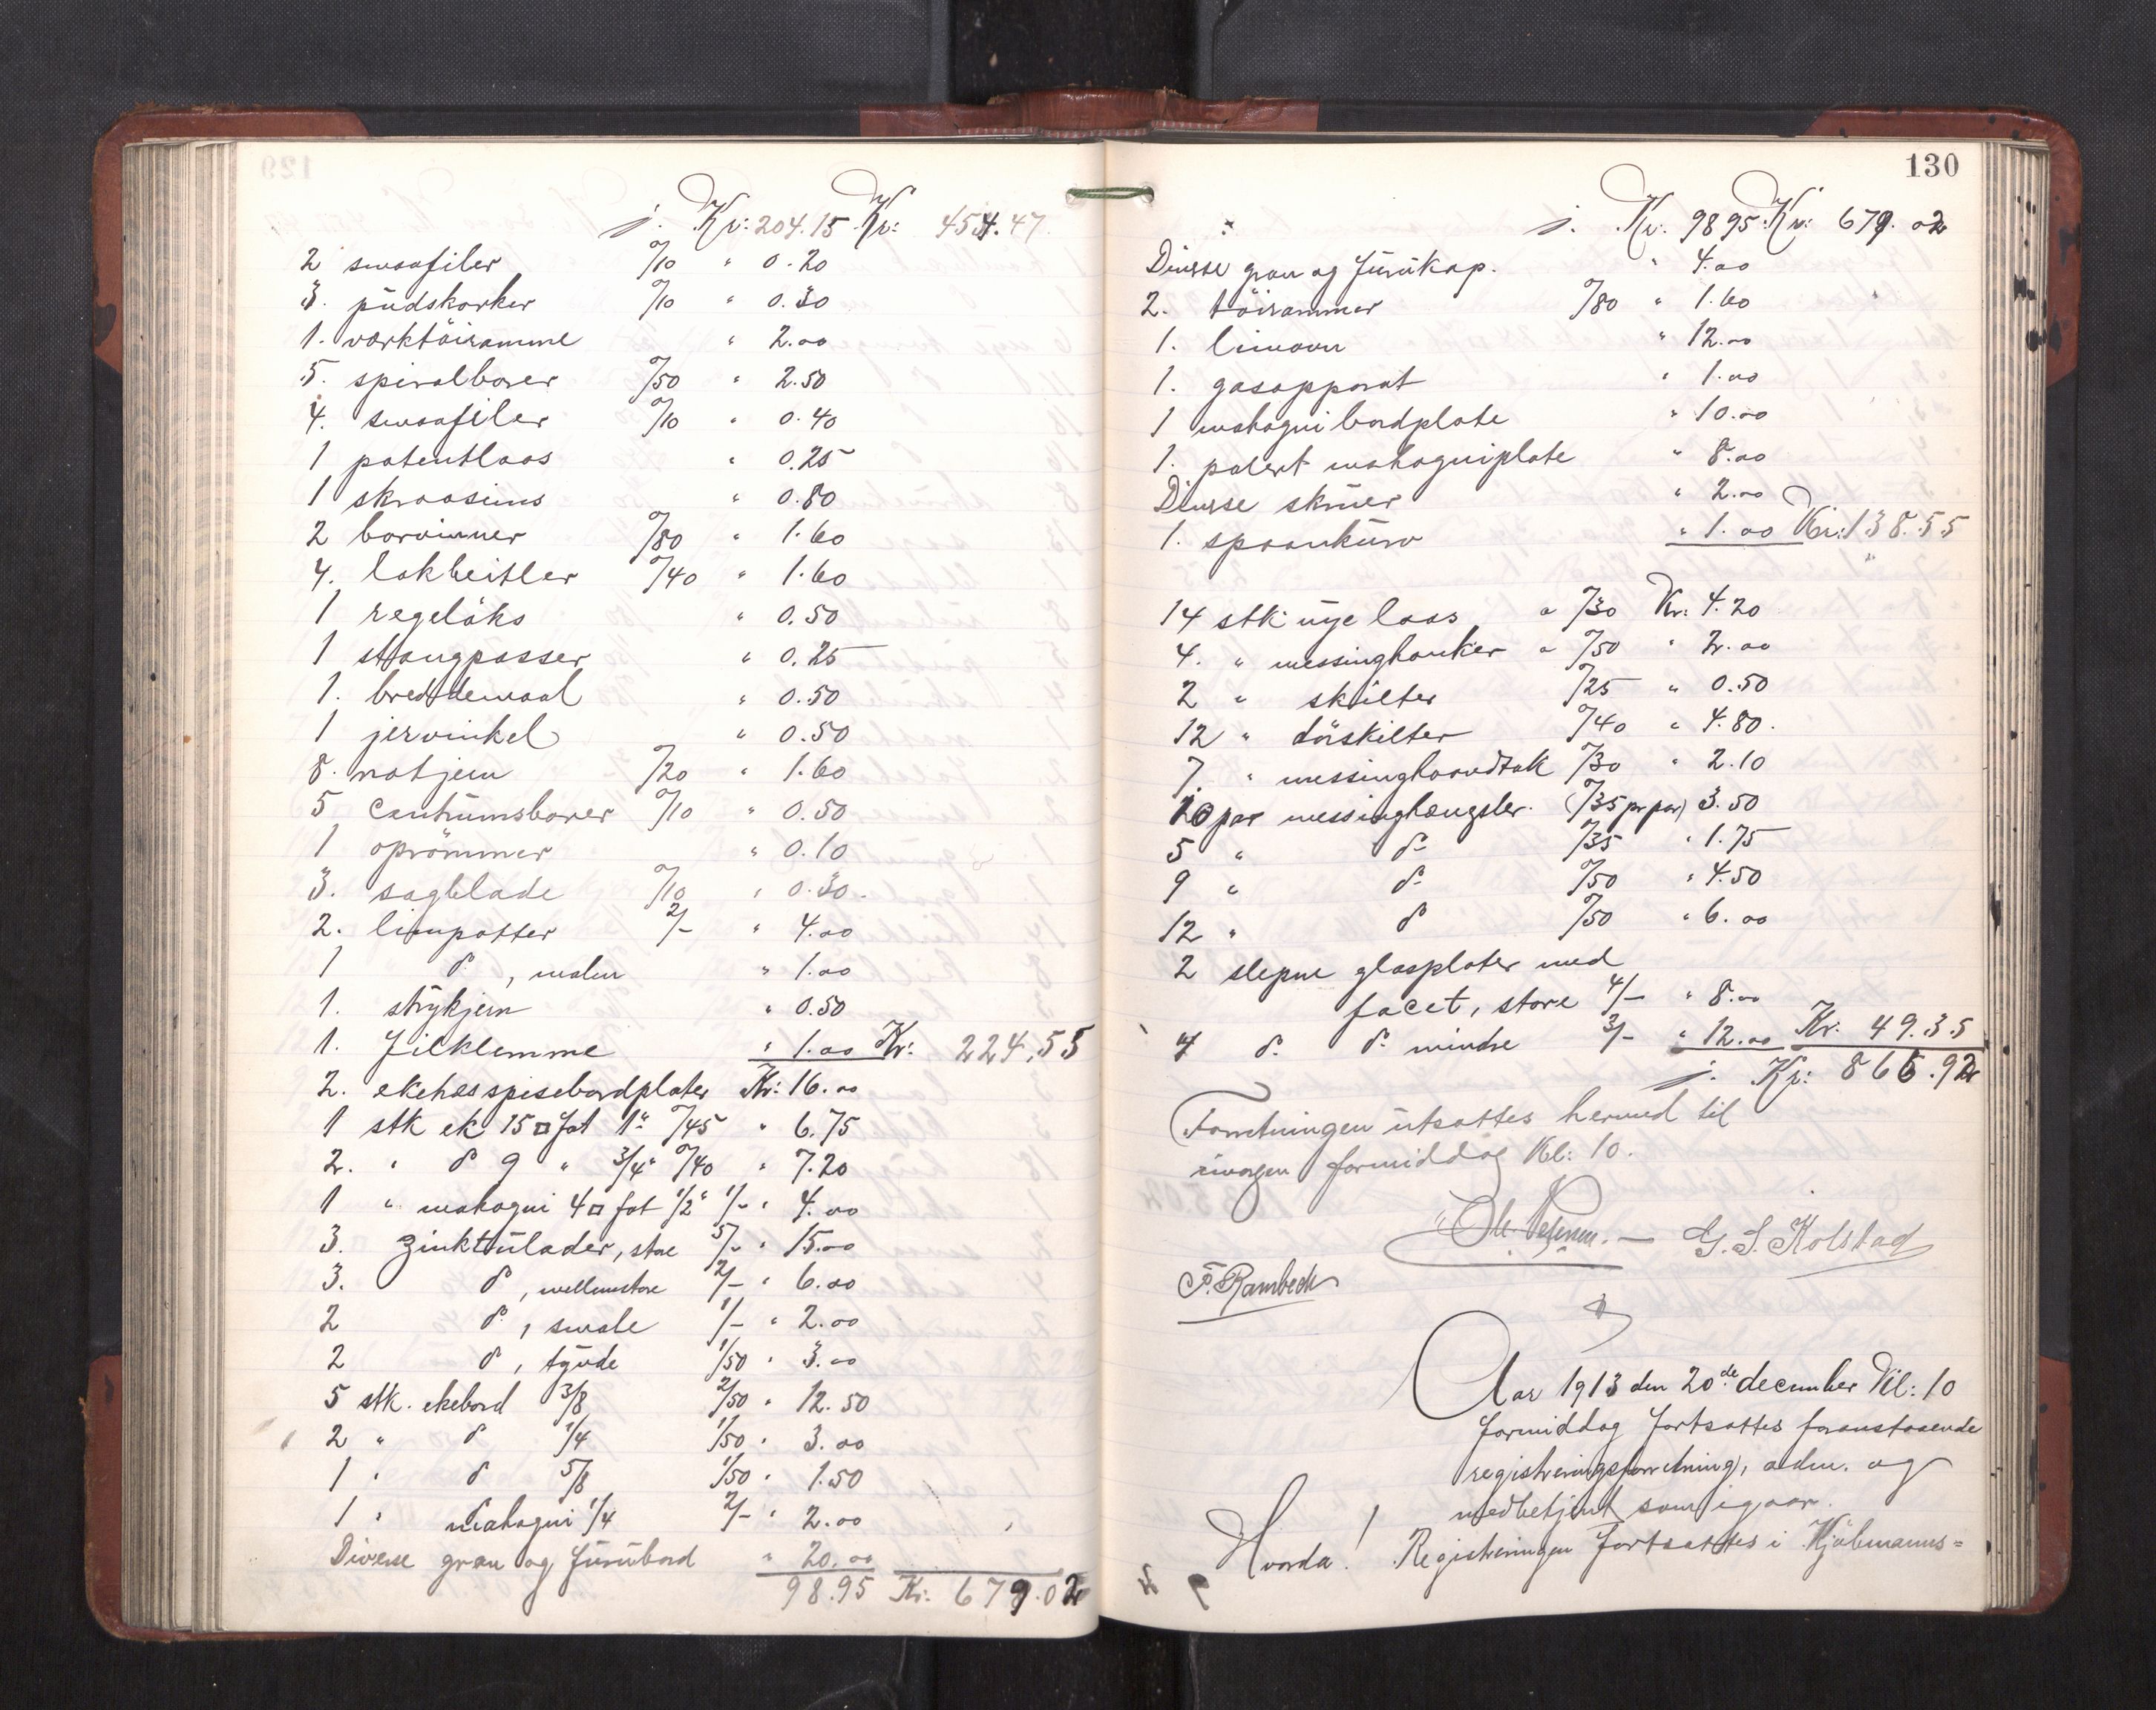 129
j. Kr: 204.15 Kr: 454.47
2 smaafiler 0/10 " 0.20
3. pudskorker 0/10 " 0.30
1. værktöisramme " 2.00
5. spiralborer 0/50 " 2.50
4. smaafiler 0/10 " 0.40
1 patentlaas " 0.25
1 skraasims " 0.80
2 borvinner 0/80 " 1.60
4. lokbeitler 0/40 " 1.60
1 regeløks " 0.50
1 stangpasser " 0.25
1. breddemaal " 0.50
1 jervinkel " 0.50
8. notjern 0/20 " 1.60
5 centrumsborer 0/10 " 0.50
1 oprömmer " 0.10
3. sagblade 0/10 " 0.30.
2. limpotter 2/- " 4.00
1 do, " 1.00
1. strykjern " 0.50
1. filklemme " 1.00 Kr: 224,55
2. ekehæsspisebordplater Kr: 16.00
1 stk ek 15 □ fot 1" 0/45 " 6.75
2. " do 9 " 3/4" 0/40 " 7.20
1 " mahogni 4 □ fot 1/2" 1/- " 4.00
3. zinktulader, store 5/- " 15.00
3. do, mellemstore 2/- " 6.00
2 do, smale 1/- " 2.00
2 do, tynde 1/50 " 3.00
5 stk. ekebord 3/8 2/50 " 12.50
2 " do 1/4 1/50 " 3.00
1 " do 5/8 1/50 " 1.50
1 " mahogni 1/4 2/- " 2.00
Diverse gran og furubord " 20.00
98.95 Kr. 679.02
130
j. Kr. 98 95 Kr: 679.02
Diverse gran og furukap. " 4.00
2. töirammer 0/80 " 1.60
1. limovn " 12.00
1. gasapparat " 1.00
1 mahogni bordplate " 10.00
1. polert mahogniplate " 8.00
Diverse skruer " 2.00
1. spaankurv " 1.00 Kr: 138.55
14 stk nye laas a 0/30 Kr: 4.20
4. " messinghanker a 0/50 " 2.00
2 " skilter 0/25 " 0.50
12 " dörskilter 0/40 " 4.80.
7. " messinghaandtak 0/30 " 2.10
10 par messinghængsler. (0/35 pr par) 3.50
5 " do 0/35 " 1.75
9 " do 0/50 " 4.50
12 " do 0/50 " 6.00
2 slepne glasplater med
facet, store 4/- " 8.00
4 do. do. mindre 3/- " 12.00 Kr. 49.35
j. Kr: 866.92
Forretningen utsattes herved til
imorgen formiddag Kl: 10.
G. S. Kolstad
F. Rambeck
Aar 1913 den 20de december Kl: 10
formiddag fortsattes foranstaaende
registreringsforretning, adm. og
medbetjent som igaar.
Hvorda! Registreringen fortsattes i Kjöbmanns=